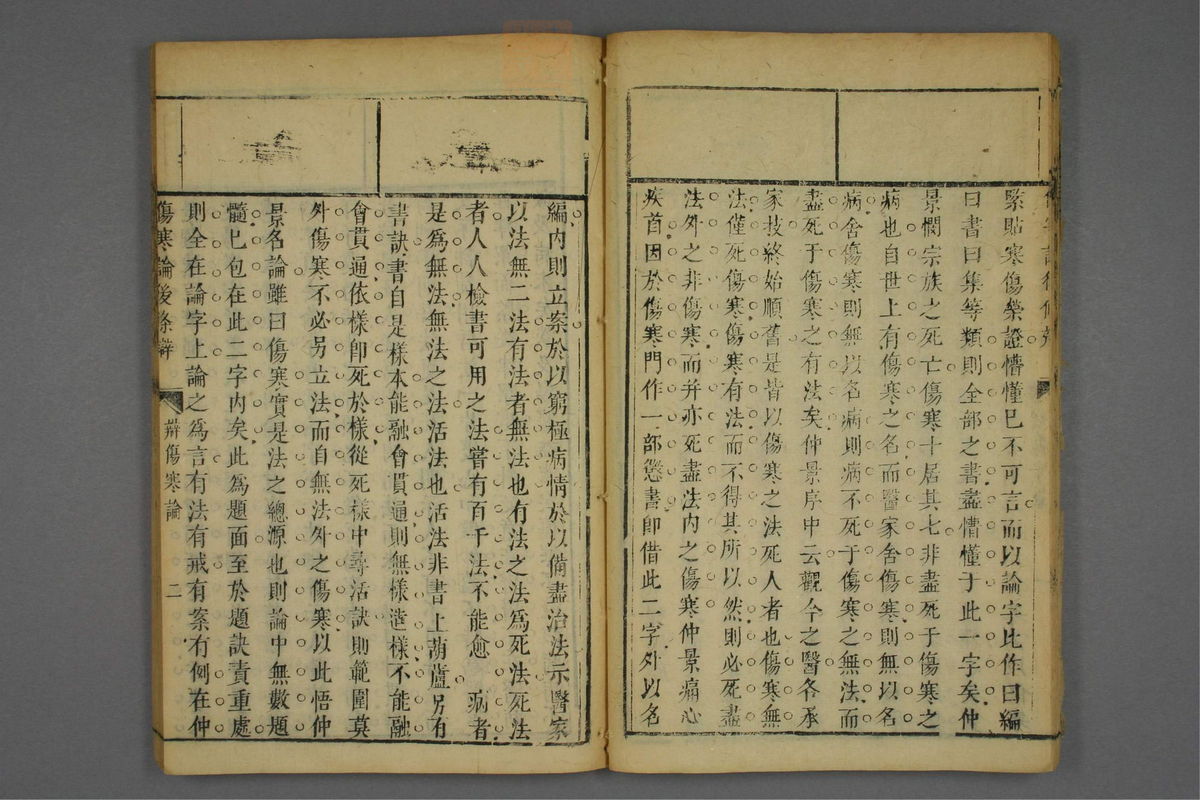 緊貼寒傷槩證懵懂已不可言而以論字比作曰編
曰書曰集等類則全部之書盡懵懂于此一字矣仲
景憫宗族之死亡傷寒十居其七非盡死于傷寒之
病也自世上有傷寒之名而醫家舍傷寒則無以名
病舍傷寒則無以名病則病不死于傷寒之無法而
盡死于傷寒之有法矣仲景序中云觀今之醫各承
家技終始順舊是皆以傷寒之法死人者也傷寒無
法僅死傷寒傷寒有法而不得其所以然則必死盡
法外之非傷寒而并亦死盡法內之傷寒仲景痛心
疾首因於傷寒門作一部慾書即借此二字外以名
編內則立案於以窮極病情於以備盡治法示醫家
以法無二法有法者無法也有法之法為死法死法
者人人檢書可用之法嘗有百千法不能愈 病者
是爲無法無法之法活法也活法非書上葫蘆另有
書訣書自是樣本能融會貫通則無樣造樣不能融
會貫通依樣卽死於樣從死樣中尋活訣則範圍莫
外傷寒不必另立法而自無法外之傷寒以此悟仲
景名論雖曰傷寒實是法之總源也則論中無數題
髓已包在此二字內矣此爲題面至於題訣責重處
則全在論字上論之爲言有法有戒有案有例在仲
傷寒論後條辯
辯傷寒論
二